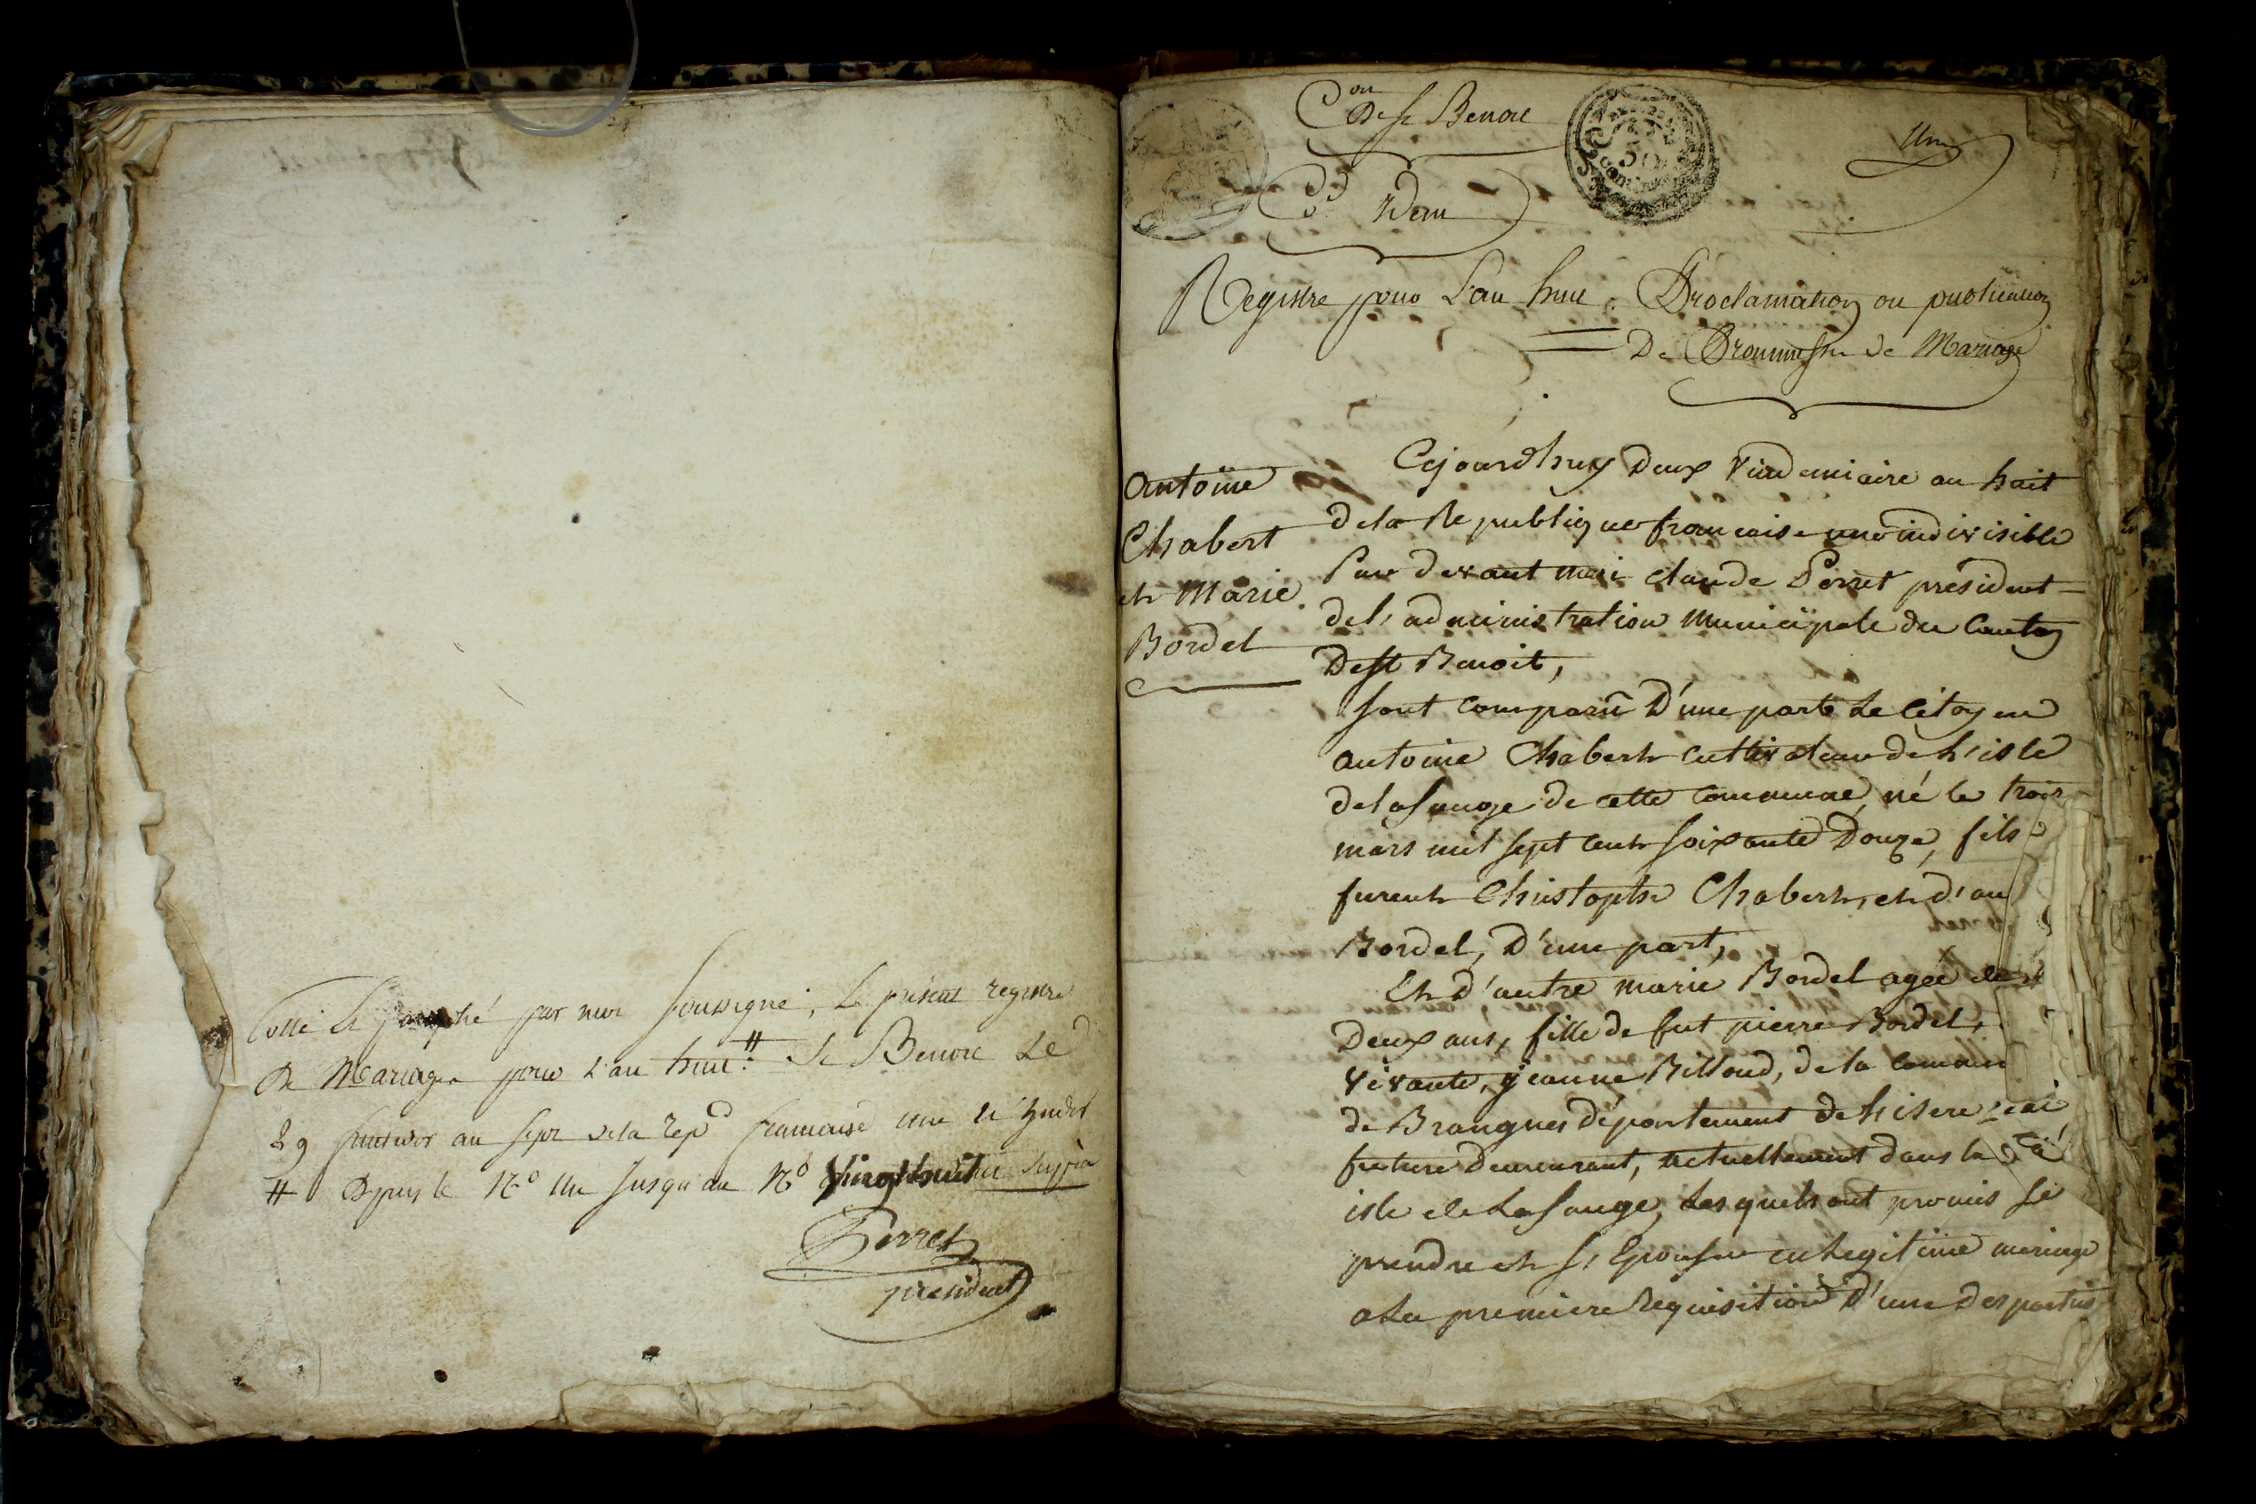 Cotté et paraphé par moi soussigné, le présent registre
De Mariages pour l'an huit # St Benoit Le
29 fructidor an sept de la repd française une et indivi
# Depuis le No Un Jusqu'au No Vingt huit
Perret
président
Con De St Benoit
Idem
50
Cent
Un
Registre pour L'an huit. Proclamation ou publication
De Prommesse de Mariage
Antoine
Chabert
et Marie
Bordel
Cejourdhuy Deux Vindemiaire an huit
dela Republique francaise une indivisible
Par devant moi claude Perret president
del'administration municipale du Canton
De St Benoit,
Sont comparu D'une parte Le Citoyen
Antoine Chabert cultivateur de L'isle
de la Sauge de cette commune, né le trois
mars mil sept cent soixante Douze, fils
furent Christophe Chabert, et d'an
Bordel, D'une part,
Et D'autre marie Bordel agée de
Deux ans, fille de fut pierre Bordel,
vivante, jeanne Billoud, de la commun
de Brangues departement de L'isere
future Demeurant, actuellement dans la
isle de La Sauge, Lesquels ont promis se
prendre et s'Epouser en Legitime mariage
a La premiere Requisition D'une des parties